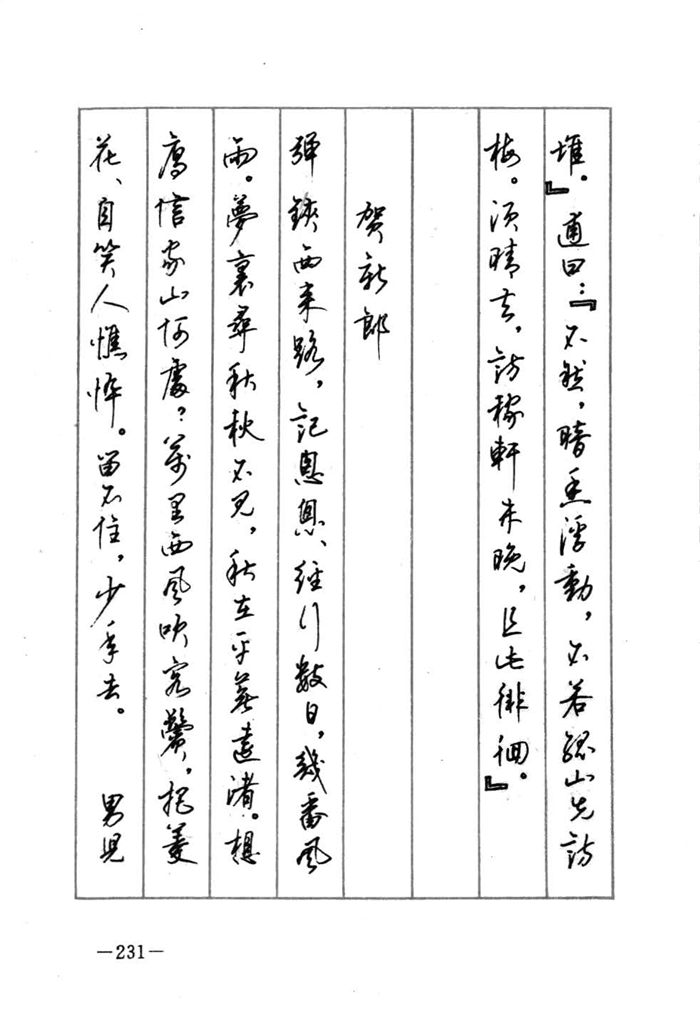 堆。』逋曰：『不然，暗香浮動，不若孤山先訪
梅。須晴去，訪稼軒未晚，且此徘徊。』
贺新郎
彈鋏西来路，記匆匆、經行數日，幾番風
雨。夢裏尋秋秋不見，秋在平蕪遠渚。想
雁信家山何處？萬里西風吹客鬢，把菱
花、自笑人憔悴。留不住，少年去。　男児
—231—